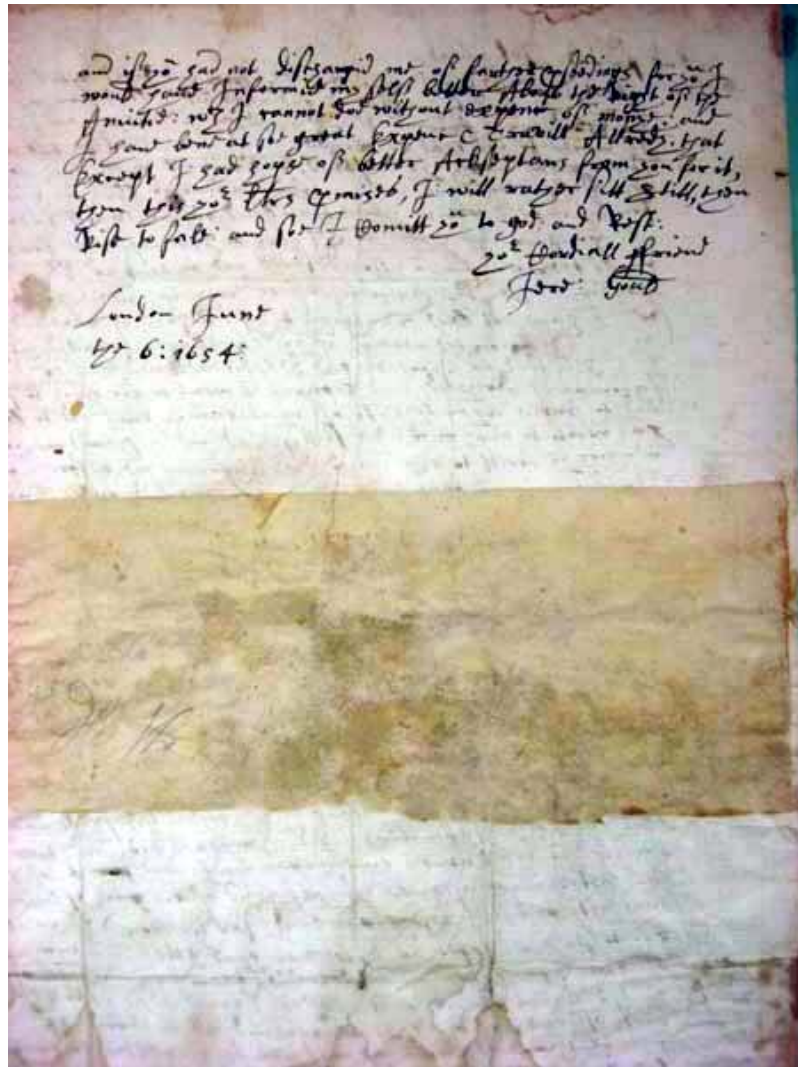 and if yo had not discharged me of farther pseedings for yo I
would haue Informed my self better About the Right of the
Anuitie: wch I cannot doe without expence of monie: and
I haue bene at soe great Expence & Travill Allredy: that
Except I had hope of better Ackseptans from you for it,
then this yor ltrs pmises, I will rather sitt Still, then
Rise to fall: and soe I Comitt yo to god: and Rest:
yor Cordiall ffriend
Jere: Gould
London June
the 6: 1654: